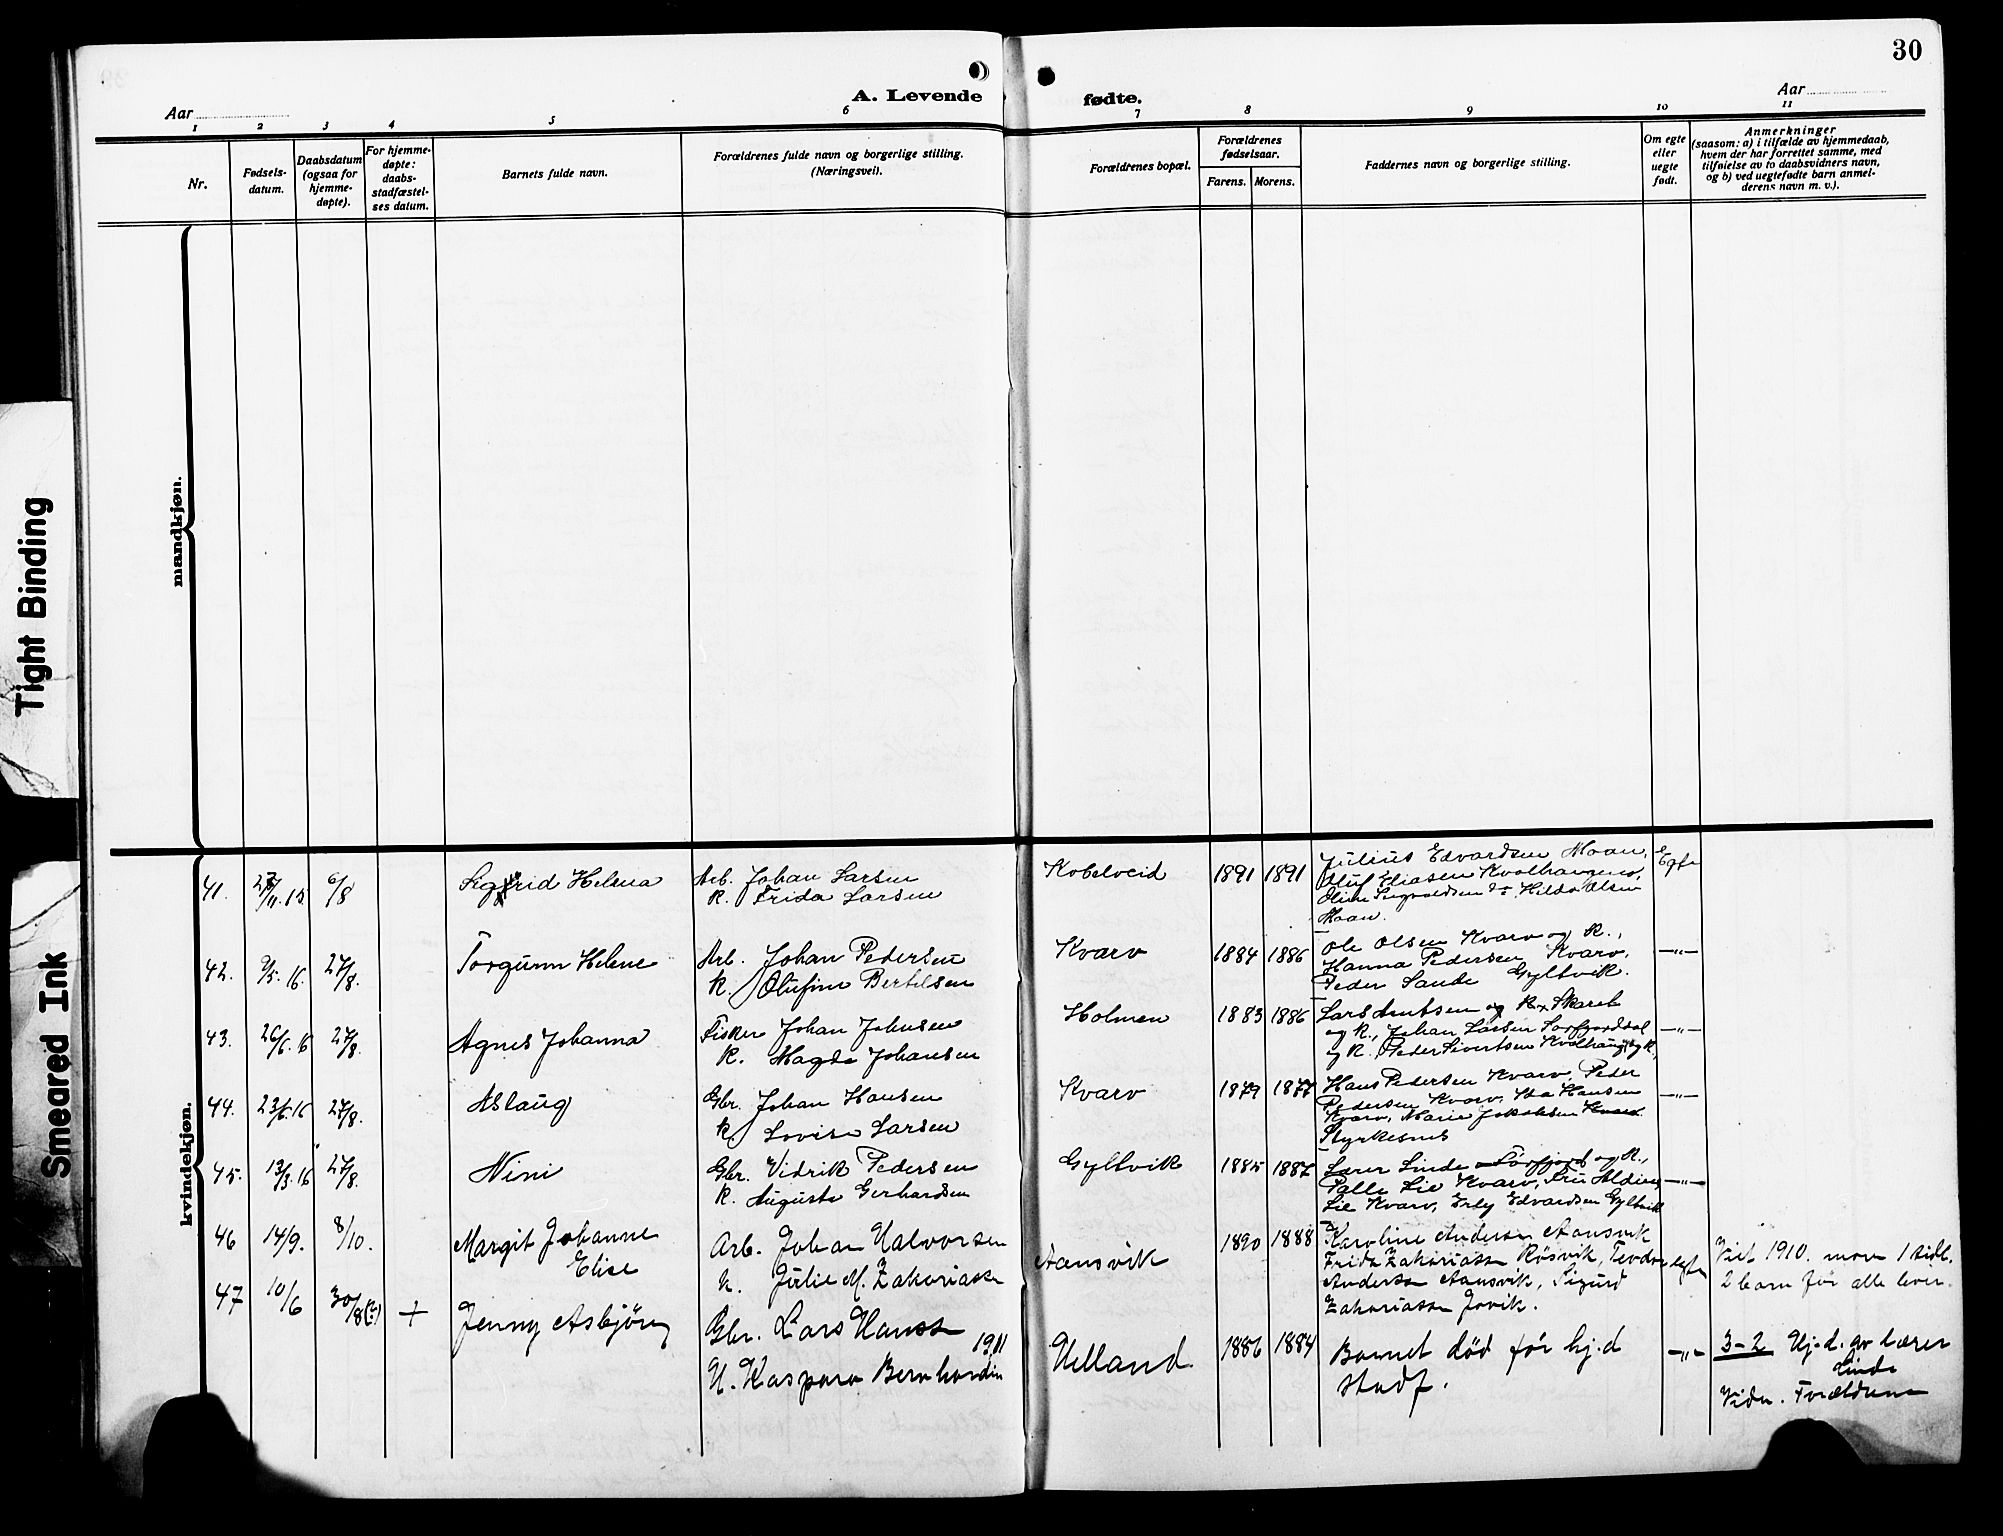 30
A. Levende fødte.
Aar
Aar
1 2 3 4 5 6 7 8 9 10 11
Nr.
Fødsels-
datum.
Daabsdatum
(ogsaa for
hjemme-
døpte).
For hjemme-
døpte:
daabs-
stadfæstel-
ses datum.
Barnets fulde navn.
Forældrenes fulde navn og borgerlige stilling.
(Næringsvei).
Forældrenes bopæl.
Forældrenes
fødselsaar.
Farens. Morens.
Faddernes navn og borgerlige stilling.
Om egte
eller
uegte
født.
Anmerkninger
(saasom: a) i tilfælde av hjemmedaab,
hvem der har forrettet samme, med
tilføielse av to daabsvidners navn,
og b) ved uegtefødte barn anmel-
derens navn m. v.).
mandkjøn.
kvindekjøn.
Tight Binding
Smeared Ink
41. 6/8 Sigfrid Helena
Arb. Johan Larsen
K. Frida Larsen
Kobelveid 1891 1891
Julius Edvardsen Moan,
Oluf Eliasen Kvalhaugen,
Hilda Olsen
Moan.
Egte
42. 9/5. 16. 27/8. Torgunn Helene
Arb. Johan Pedersen
K. Olufine Bertelsen
Kvarv 1884 1886
Ole Olsen Kvarv og K.,
Hanna Pedersen Kvarv,
Peder Sande Gyltvik.
—"—
43. 26/6. 16 27/8. Agnes Johanna
Fisker Johan Johnsen
K. Magda Johansen
Holmen 1883 1886
Lars Arntsen og K.
og K., Johan Larsen Sørfjorddal
og K. Peder Sivertsen
—"—
44. 23/6. 16 27/8. Aslaug
Gbr. Johan Hansen
K. Lovise Larsen
Kvarv 1879 1877
Hans Pedersen Kvarv, Peder
Pedersen Kvarv, Hansen
Kvarv, Marie Jakobsen Kvarv
Styrkesnes
—"—
45. 13/3. 16 27/8. Nini
Gbr. Vidrik Pedersen
K. Augusta Gerhardsen
Gyltvik 1885 1887
Lærer Linde Sørfjord og K.,
Palle Lie Kvarv,
Lie Kvarv, Edvardsen Gyltvik
—"—
46 14/9. 8/10. Margit Johanne
Elise
Arb. Johan Halvorsen
K. Julie M. Zakariassen
Aansvik 1890 1888
Karoline Andersen Aansvik
Frida Zakariassen Røsvik, Teodor
Andersen Aansvik, Sigurd
Zakariassen Jovik.
egte
Viet 1910. 
2 barn før alle lever.
47 10/6 30/8 + Jenny Asbjørg
Gbr. Lars Hansen
1911
H. Kaspara Bernhardin
Helland 1886 1884
Barnet død før hj.d
stadf.
—"—
3-2 Hj.d. av lærer
Linde
Vidn. Forældrene